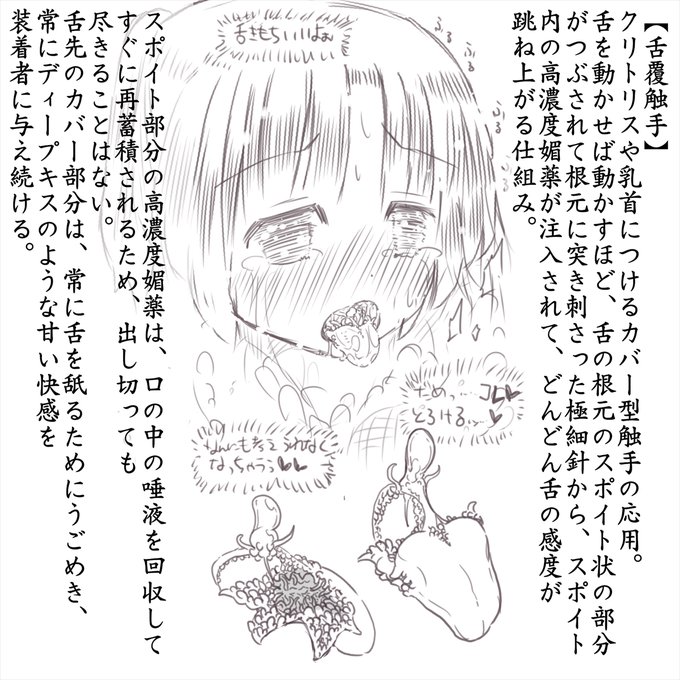 【舌覆触手】
クリトリスや乳首につけるカバー型触手の応用。
舌を動かせば動かすほど、舌の根元のスポイト状の部分
がつぶされて根元に突き刺さった極細針から、スポイト
内の高濃度媚薬が注入されて、どんどん舌の感度が
跳ね上がる仕組み。
舌きもちいいよぉ
ふる
ふる
ふる
ふる
だめっ…コレ♥♥
とろけるッ…♥
なんにも考えられなく
なっちゃうぅ♥♥
スポイト部分の高濃度媚薬は、口の中の唾液を回収して
すぐに再蓄積されるため、出し切っても
尽きることはない。
舌先のカバー部分は、常に舌を舐るためにうごめき、
常にディープキスのような甘い快感を
装着者に与え続ける。